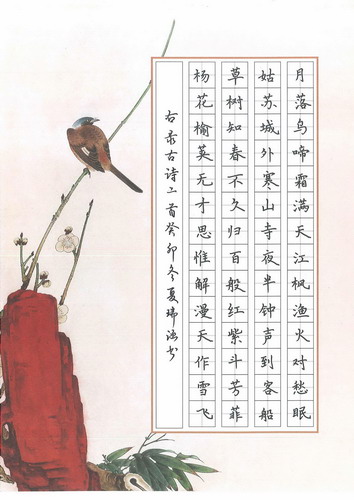 月落乌啼霜满天江枫渔火对愁眠
姑苏城外寒山寺夜半钟声到客船
草树知春不久归百般红紫斗芳菲
杨花榆荚无才思惟解漫天作雪飞
右录古诗二首癸卯冬夏瑞书